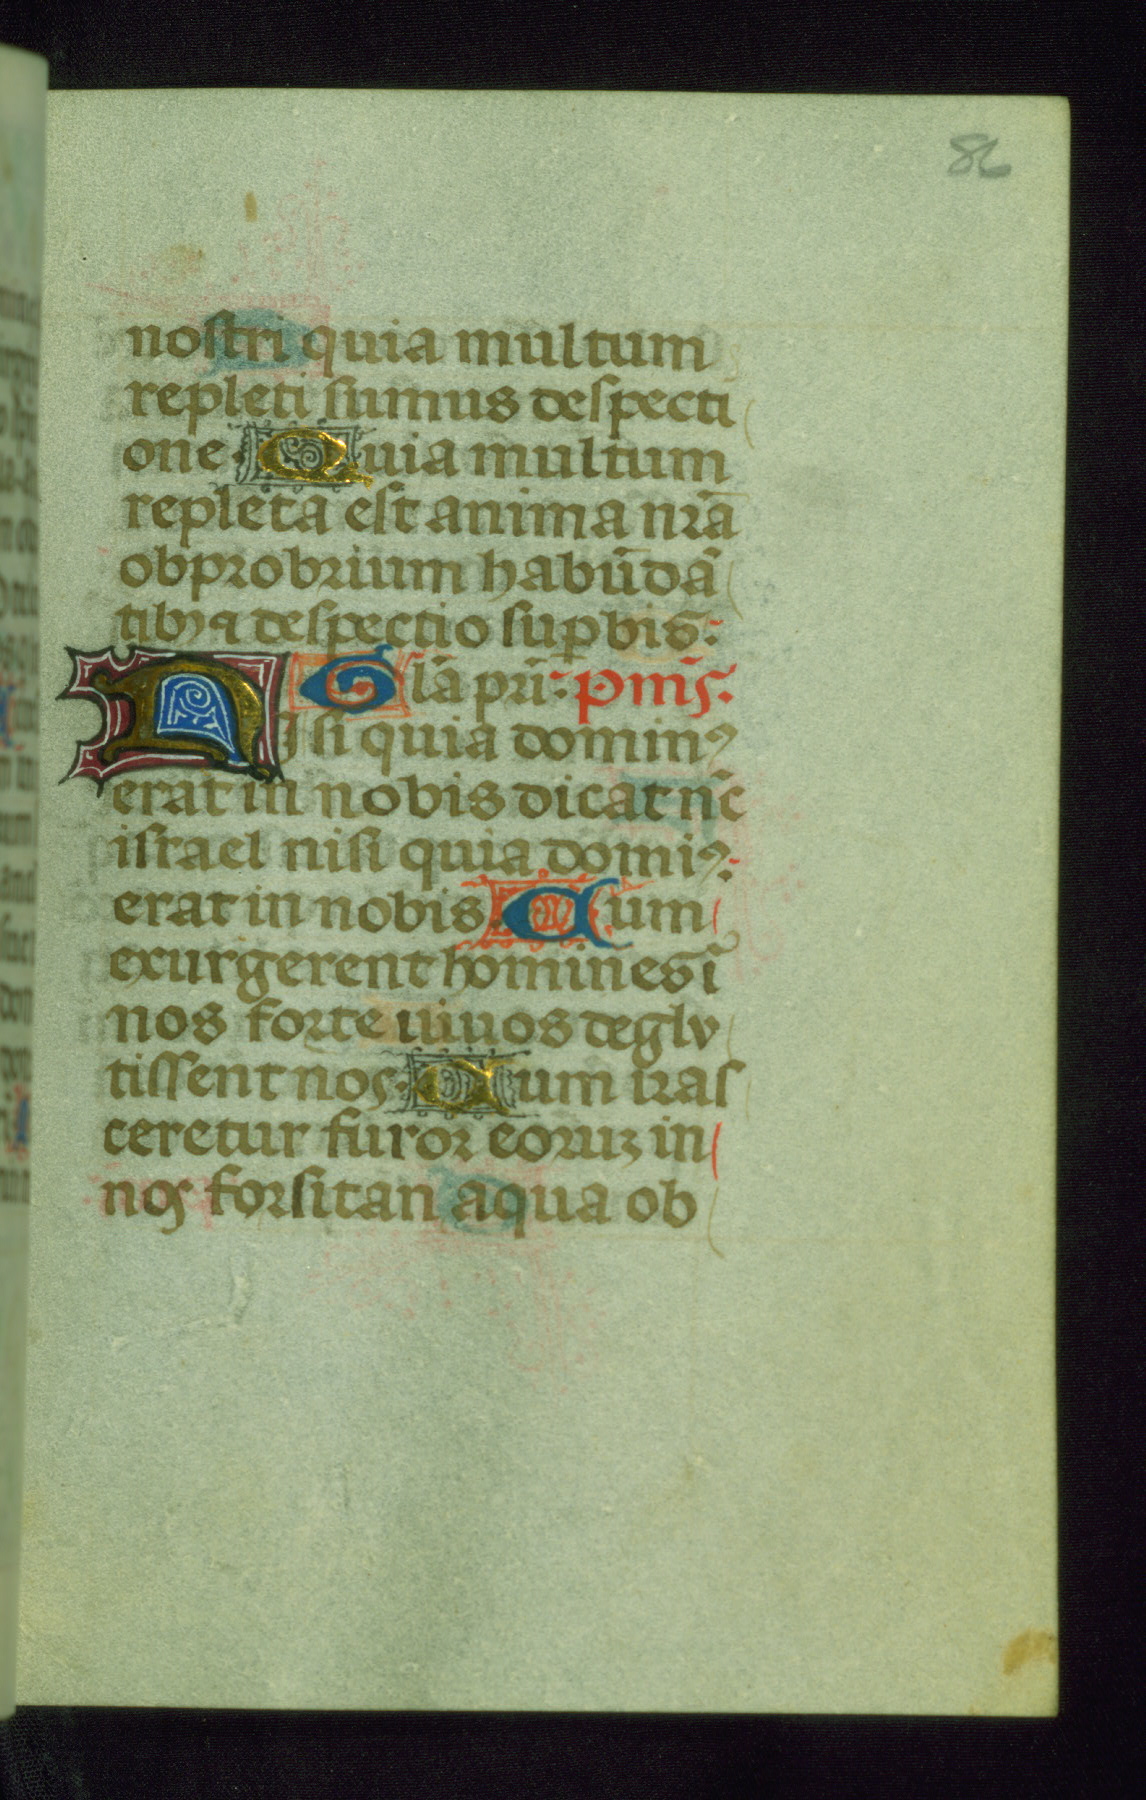 86
nostri quia multum
repleti sumus despecti
one. Quia multum
repleta est anima nr̄a
obprobrium habūdā
tibꝫ ⁊ despectio sup̱bis:
Gl̄a pr̄i. p̄m̄s.
Nisi quia dominꝰ
erat in nobis dicat nc̄
israel nisi quia domiꝰ:
erat in nobis. Cum
exurgerent homines ī
nos forte uiuos deglv
tissent nos. Cum iras
ceretur furor eoruꝫ in
nos forsitan aqua ob